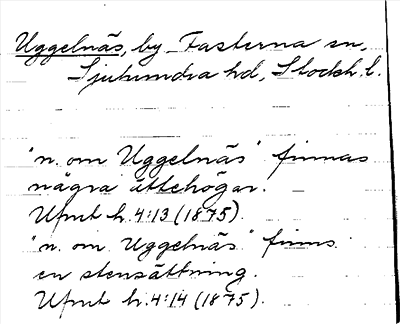 Uggelnäs, by Fasterna sn,
Sjuhundra hd, Stockh. l.
"n. om Uggelnäs" finnas
några ättehögar.
Ufmt h. 4:13 (1875).
"n. om Uggelnäs" finns
en stensättning.
Ufmt h. 4:14 (1875).